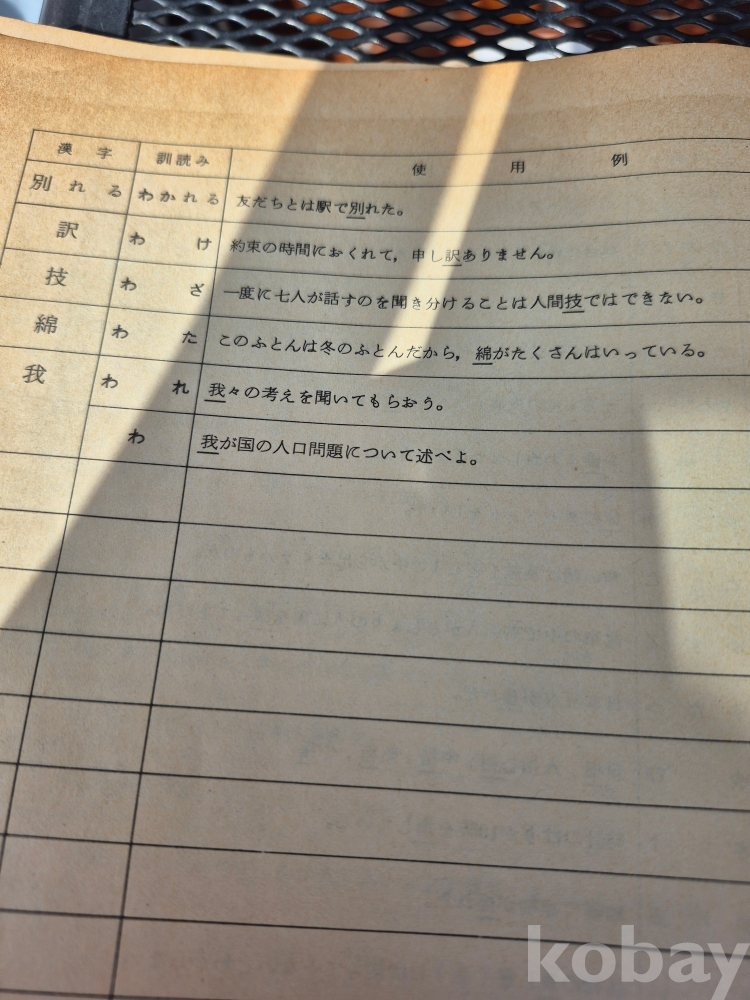 漢字 訓読み 使用例
別れる わかれる 友だちとは駅で別れた。
訳 わけ 約束の時間におくれて，申し訳ありません。
技 わざ 一度に七人が話すのを聞き分けることは人間技ではできない。
綿 わた このふとんは冬のふとんだから，綿がたくさんはいっている。
我 われ 我々の考えを聞いてもらおう。
わ 我が国の人口問題について述べよ。
kobay